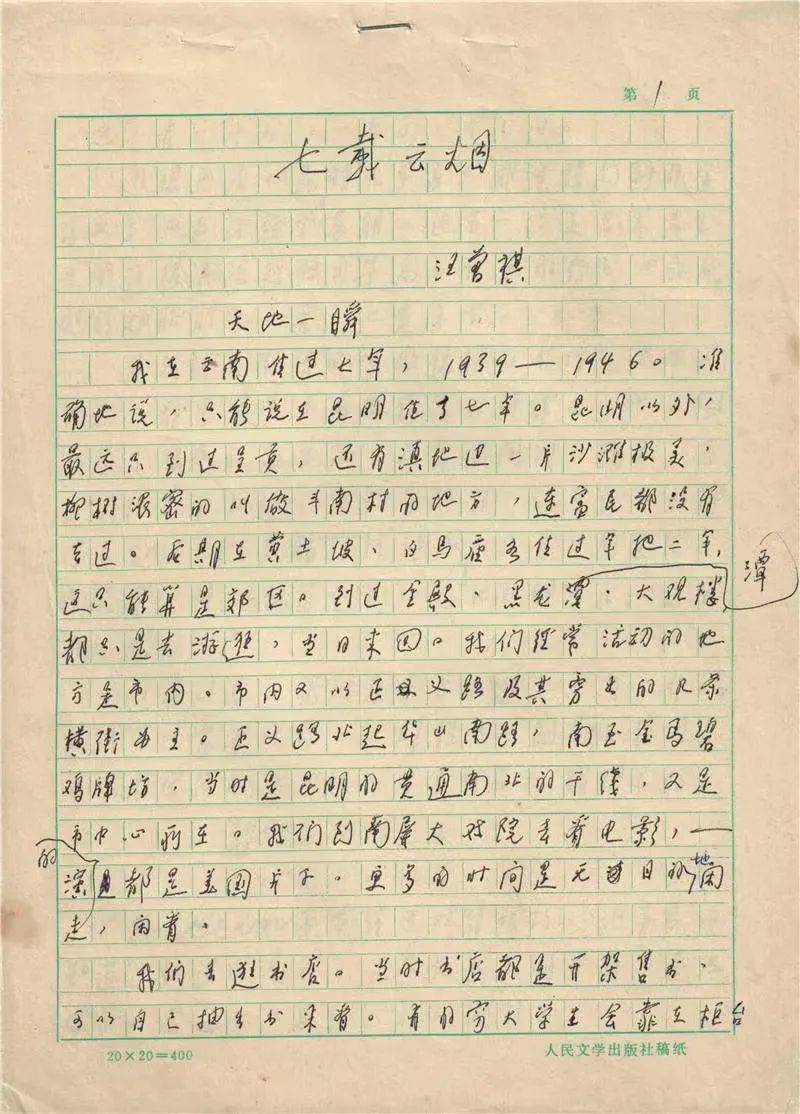 第1页
七载云烟
汪曾祺
天地一瞬
我在云南住过七年，1939—1946。准
确地说，只能说在昆明住了七年。昆明以外，
最远只到过呈贡，还有滇池边一片沙滩极美、
柳树浓密的叫做斗南村的地方，连富民都没有
去过。后期在黄土坡、白马庙各住过年把二年，
这只能算是郊区。到过金殿、黑龙潭、大观楼，
潭
都只是去游逛，当日来回。我们经常活动的地
方是市内。市内又以正义路及其旁出的几条
横街为主。正义路北起华山南路，南至金马碧
鸡牌坊，当时是昆明的贯通南北的干线，又是
市中心所在。我们到南屏大戏院去看电影，——
演的都是美国片子。更多的时间是无目的地闲
走，闲看。
我们去逛书店。当时书店都是开架售书，
可以自己抽出书来看。有的穷大学生会靠在柜台
20×20=400
人民文学出版社稿纸